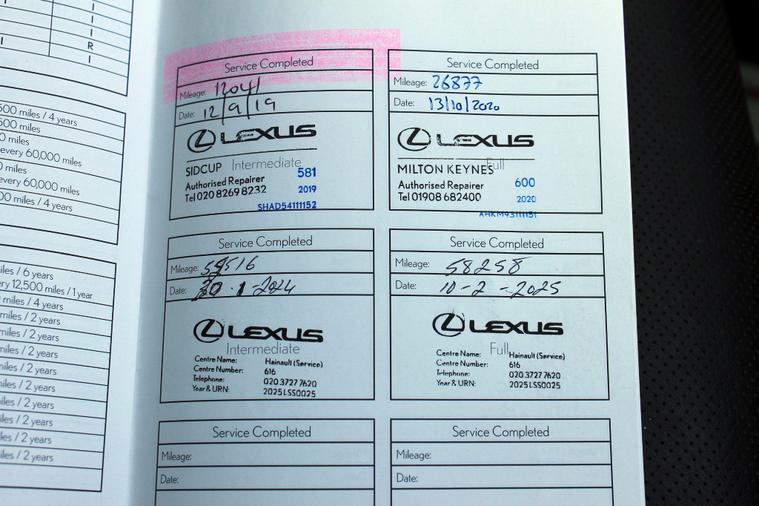 I
I
R
I
I
500 miles / 4 years
500 miles
0 miles
every 60,000 miles
0 miles
every 60,000 miles
00 miles / 4 years
iles / 6 years
ery 12,500 miles / 1 year
miles / 4 years
miles / 2 years
miles / 2 years
miles / 2 years
miles / 2 years
iles / 2 years
iles / 2 years
les / 2 years
les / 2 years
Service Completed
Mileage: 12041
Date: 12/9/19
LEXUS
Intermediate
SIDCUP
Authorised Repairer
Tel 020 8269 8232
581
2019
SHAD54111152
Service Completed
Mileage: 26877
Date: 13/10/2020
LEXUS
Full
MILTON KEYNES
Authorised Repairer
Tel 01908 682400
600
2020
AHKM93111151
Service Completed
Mileage: 59516
Date: 1-2024
LEXUS
Intermediate
Centre Name: Hainault (Service)
Centre Number: 616
Telephone: 020 3727 7620
Year & URN: 2025LSS0025
Service Completed
Mileage: 58258
Date: 10-2-2025
LEXUS
Full
Centre Name: Hainault (Service)
Centre Number: 616
Telephone: 020 3727 7620
Year & URN: 2025LSS0025
Service Completed
Mileage:
Date:
Service Completed
Mileage:
Date: